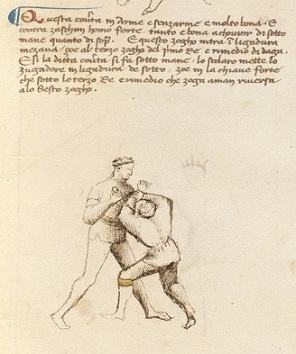 Questa couta in Arme e senzarme e molto bona. E
contra zaschun homo forte tanto e bona a chourir di sotto
mane quanto di sop. E questo zogho intra in ligadura
mezana zoe al terzo zogho del pimo Re e rimedio di daga.
E si la ditta couta si fa sotto mane lo scolaro mette lo
zugadore in ligadura de sotto zoe in la chiaue forte
che sotto lo terzo Re e rimedio che zuga a man riuersa
alo sesto zogho.